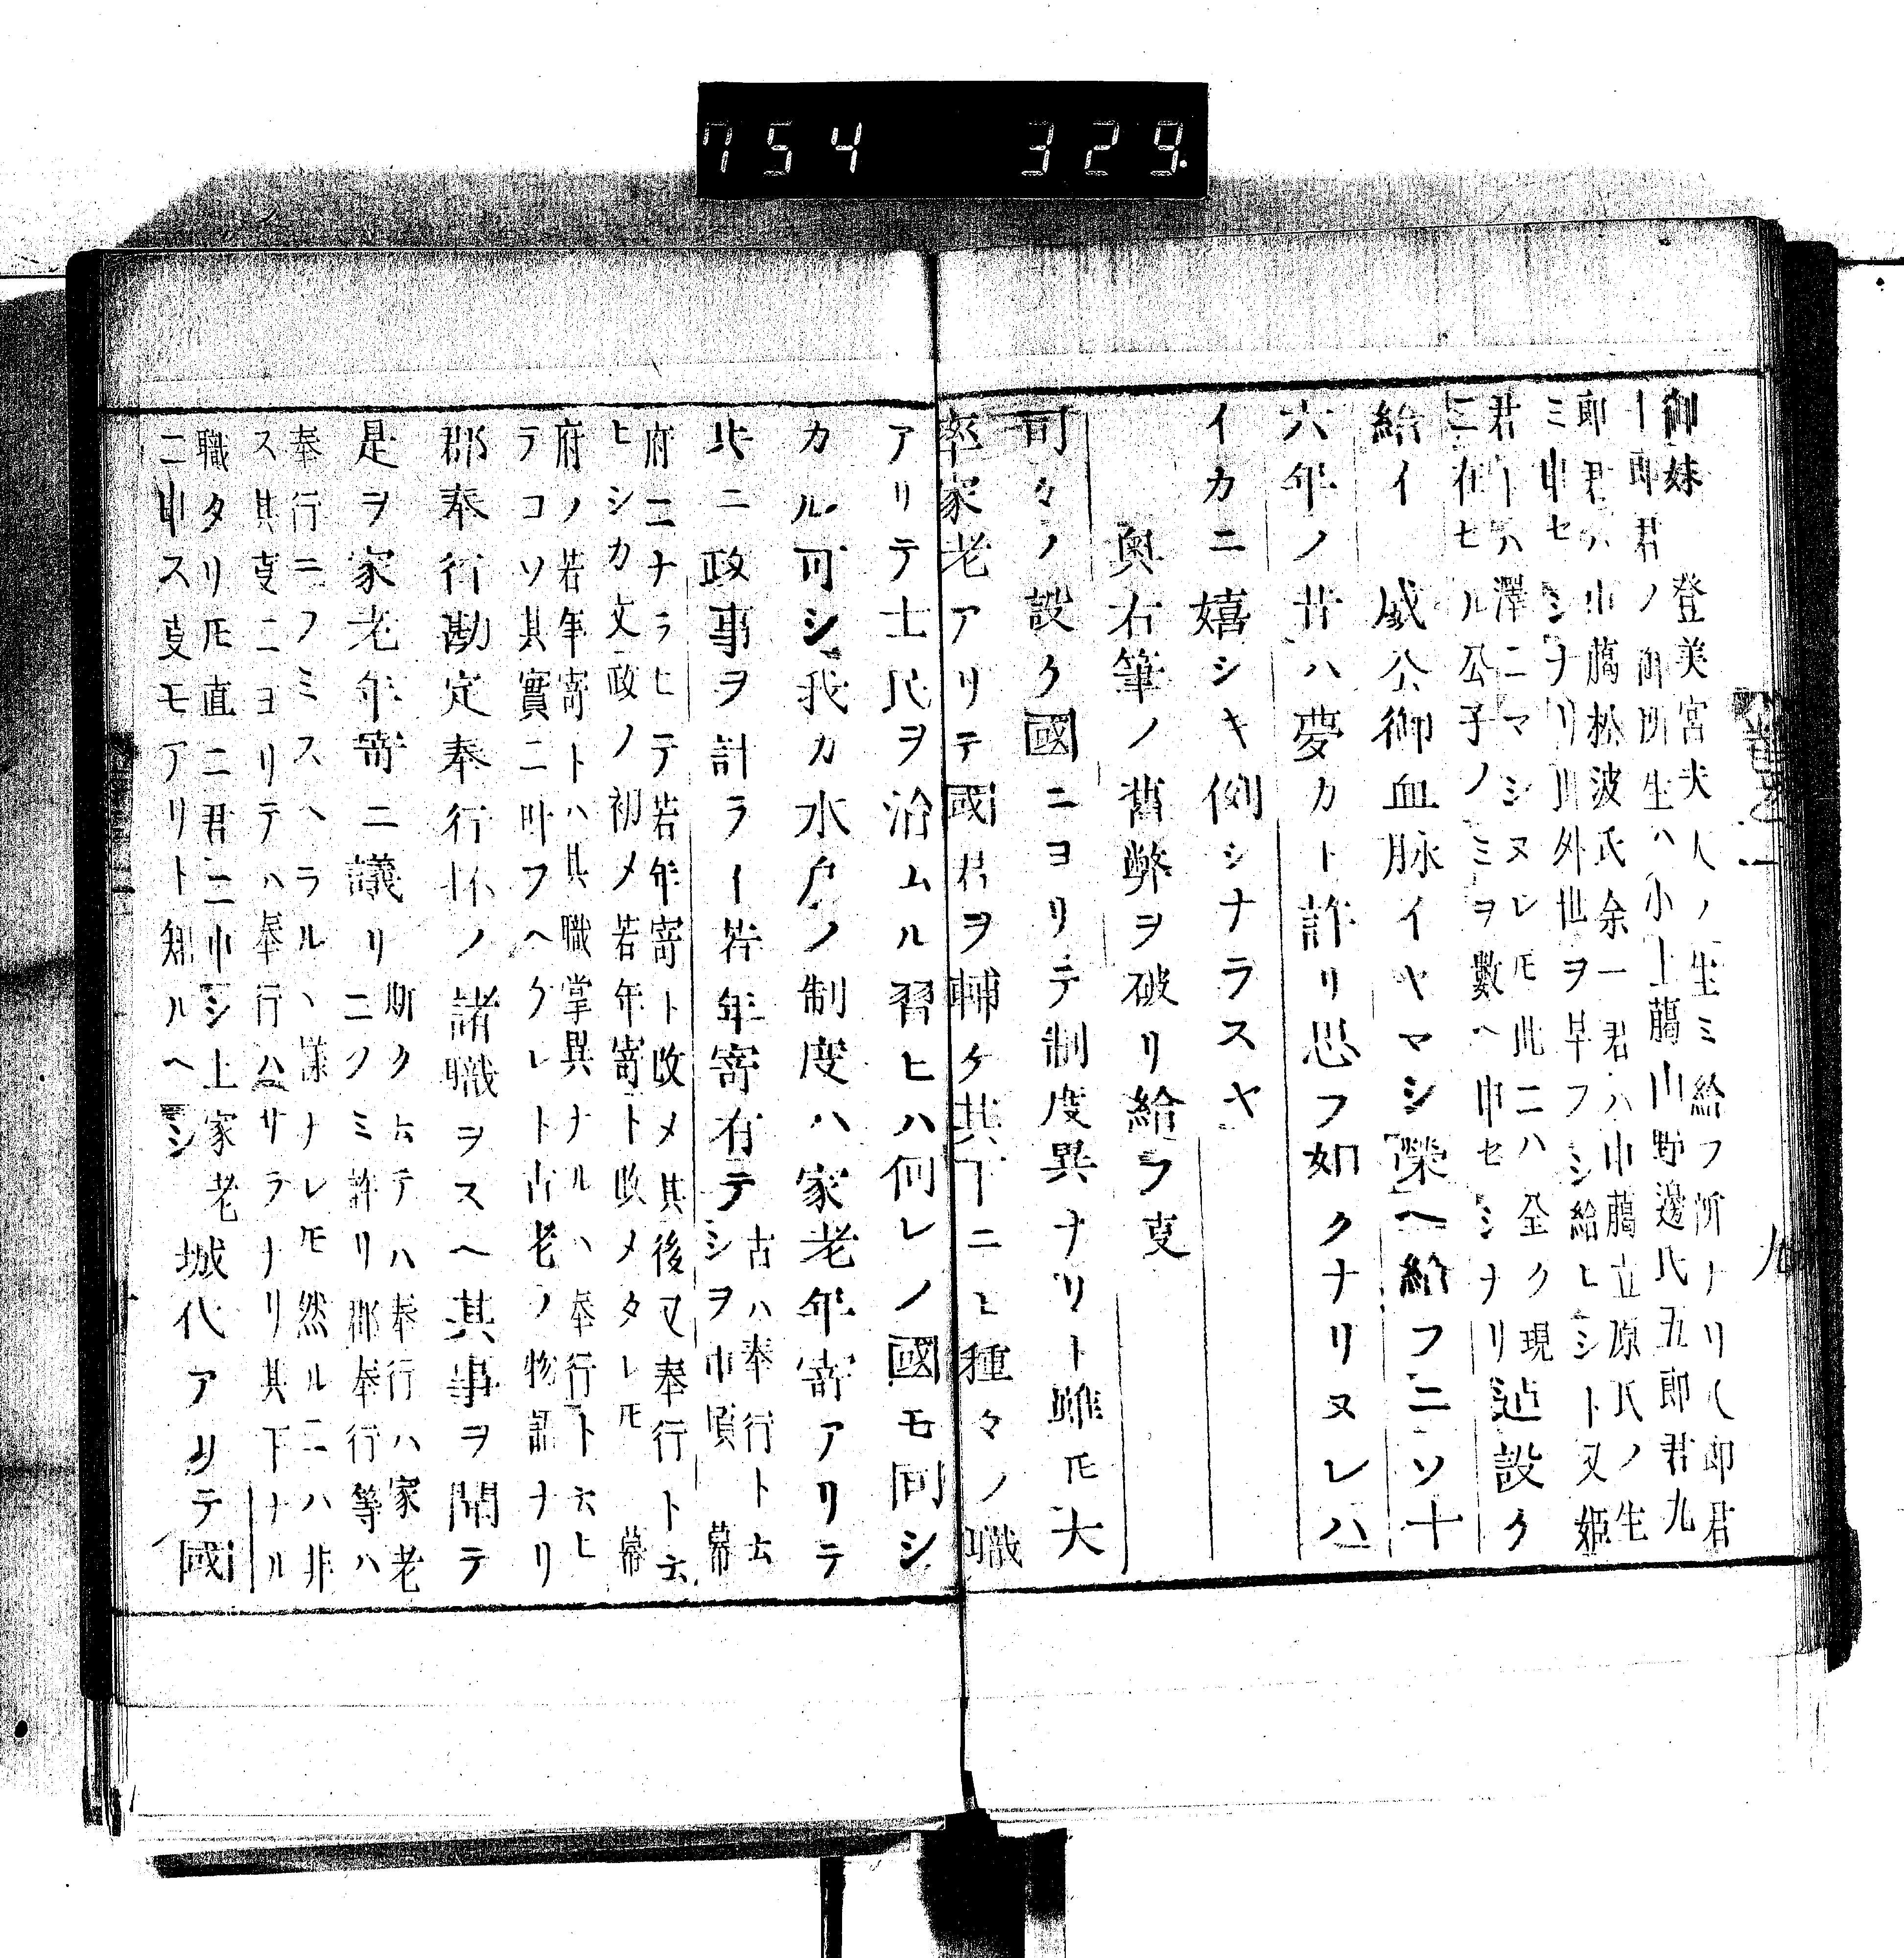 754 329
御妹　登美宮夫人ノ生ミ給フ所ナリ八郎君
十郎君ノ御所生ハ小上﨟山野邊氏五郎君九
郎君ハ中﨟松波氏余一君ハ中﨟立原氏ノ生
ミ申セシナリ外世ヲ早フシ給ヒシト又姫
君ハ澤ニマシヌレ𪜈此ニハ全ク現
ニ在セル公子ノミヲ數ヘ申セシナリ迠設ク
給イ　威公御血脉イヤマシ榮ヘ給フニソ十
六年ノ昔ハ夢カト許リ思フ如クナリヌレハ
イカニ嬉シキ例シナラスヤ
奥右筆ノ舊弊ヲ破リ給フ叓
司々ノ設ク國ニヨリテ制度異ナリト雖𪜈大
率家老アリテ國君ヲ輔ケ其下ニモ種々ノ職
九
アリテ士民ヲ治ムル習ヒハ何レノ國モ同シ
カル可シ我カ水戸ノ制度ハ家老年寄アリテ
共ニ政事ヲ計ラヒ若年寄有テ
古ハ奉行ト云
シヲ中頃　幕
府ニナラヒテ若年寄ト改メ其後又奉行ト云
ヒシカ文政ノ初メ若年寄ト改メタレ𪜈　幕
府ノ若年寄トハ其職掌異ナルハ奉行ト云ヒ
ラコソ其實ニ叶フヘケレト古老ノ物語ナリ
郡奉行勘定奉行抔ノ諸職ヲスヘ其事ヲ聞テ
是ヲ家老年寄ニ議リ
斯ク云テハ奉行ハ家老
ニノミ許リ郡奉行等ハ
奉行ニノミスヘラルヽ樣ナレ𪜈然ルニハ非
ス其叓ニヨリテハ奉行ハサラナリ其下ナル
職タリ𪜈直ニ君ニ申シ上家老
ニ申ス叓モアリト知ルヘシ
城代アリテ國